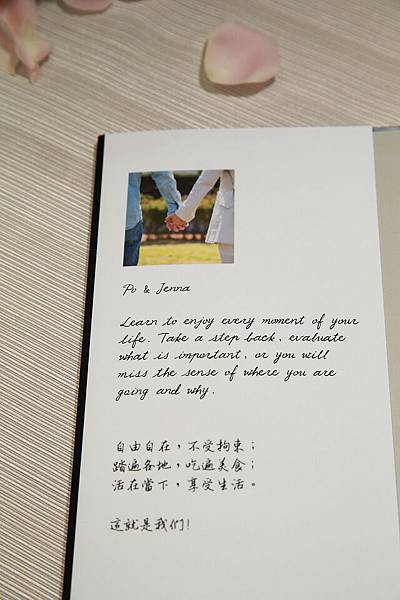 Po & Jenna
Learn to enjoy every moment of your
life. Take a step back, evaluate
what is important, or you will
miss the sense of where you are
going and why.
自由自在，不受拘束；
踏遍各地，吃遍美食；
活在當下，享受生活。
這就是我们!